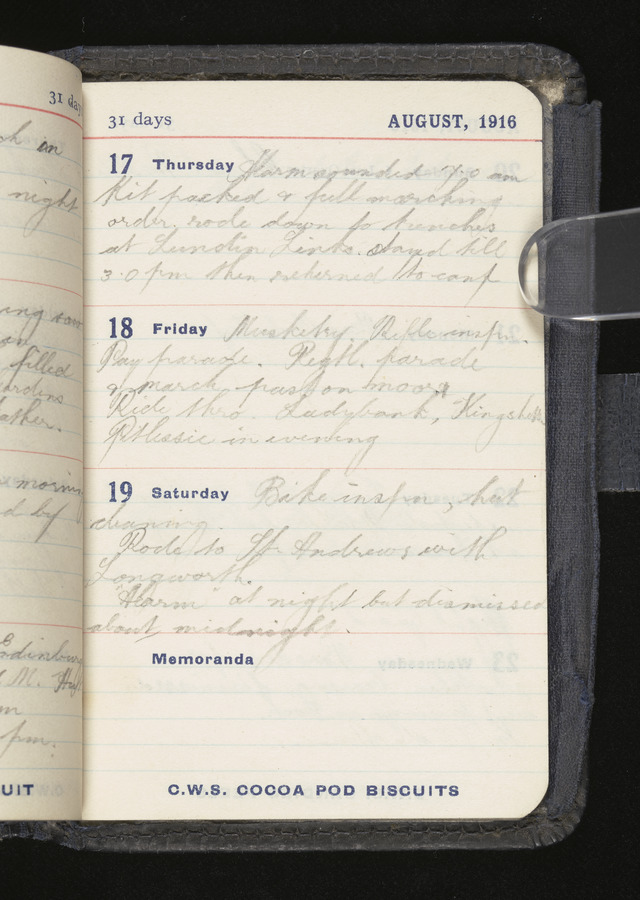 31 day
h in
night
ing
on
filled
ardens
ather.
morning
d by
Edinburg
M.
m
pm.
UIT
31 days AUGUST, 1916
17 Thursday Alarm sounded 7.0 am
Kit packed & full marching
order, rode down to trenches
at Lundin Links. Stand till
3.0 pm then returned to camp
18 Friday Musketry. Rifle inspn.
Pay parade. Regtl. parade
& march past on moor
Ride thro Ladybank, Kingskettle
Pitlessie in evening
19 Saturday Bike inspn, hut
cleaning.
Rode to St Andrews with
Longworth.
"Alarm" at night but dismissed
about midnight.
Memoranda
C.W.S. COCOA POD BISCUITS